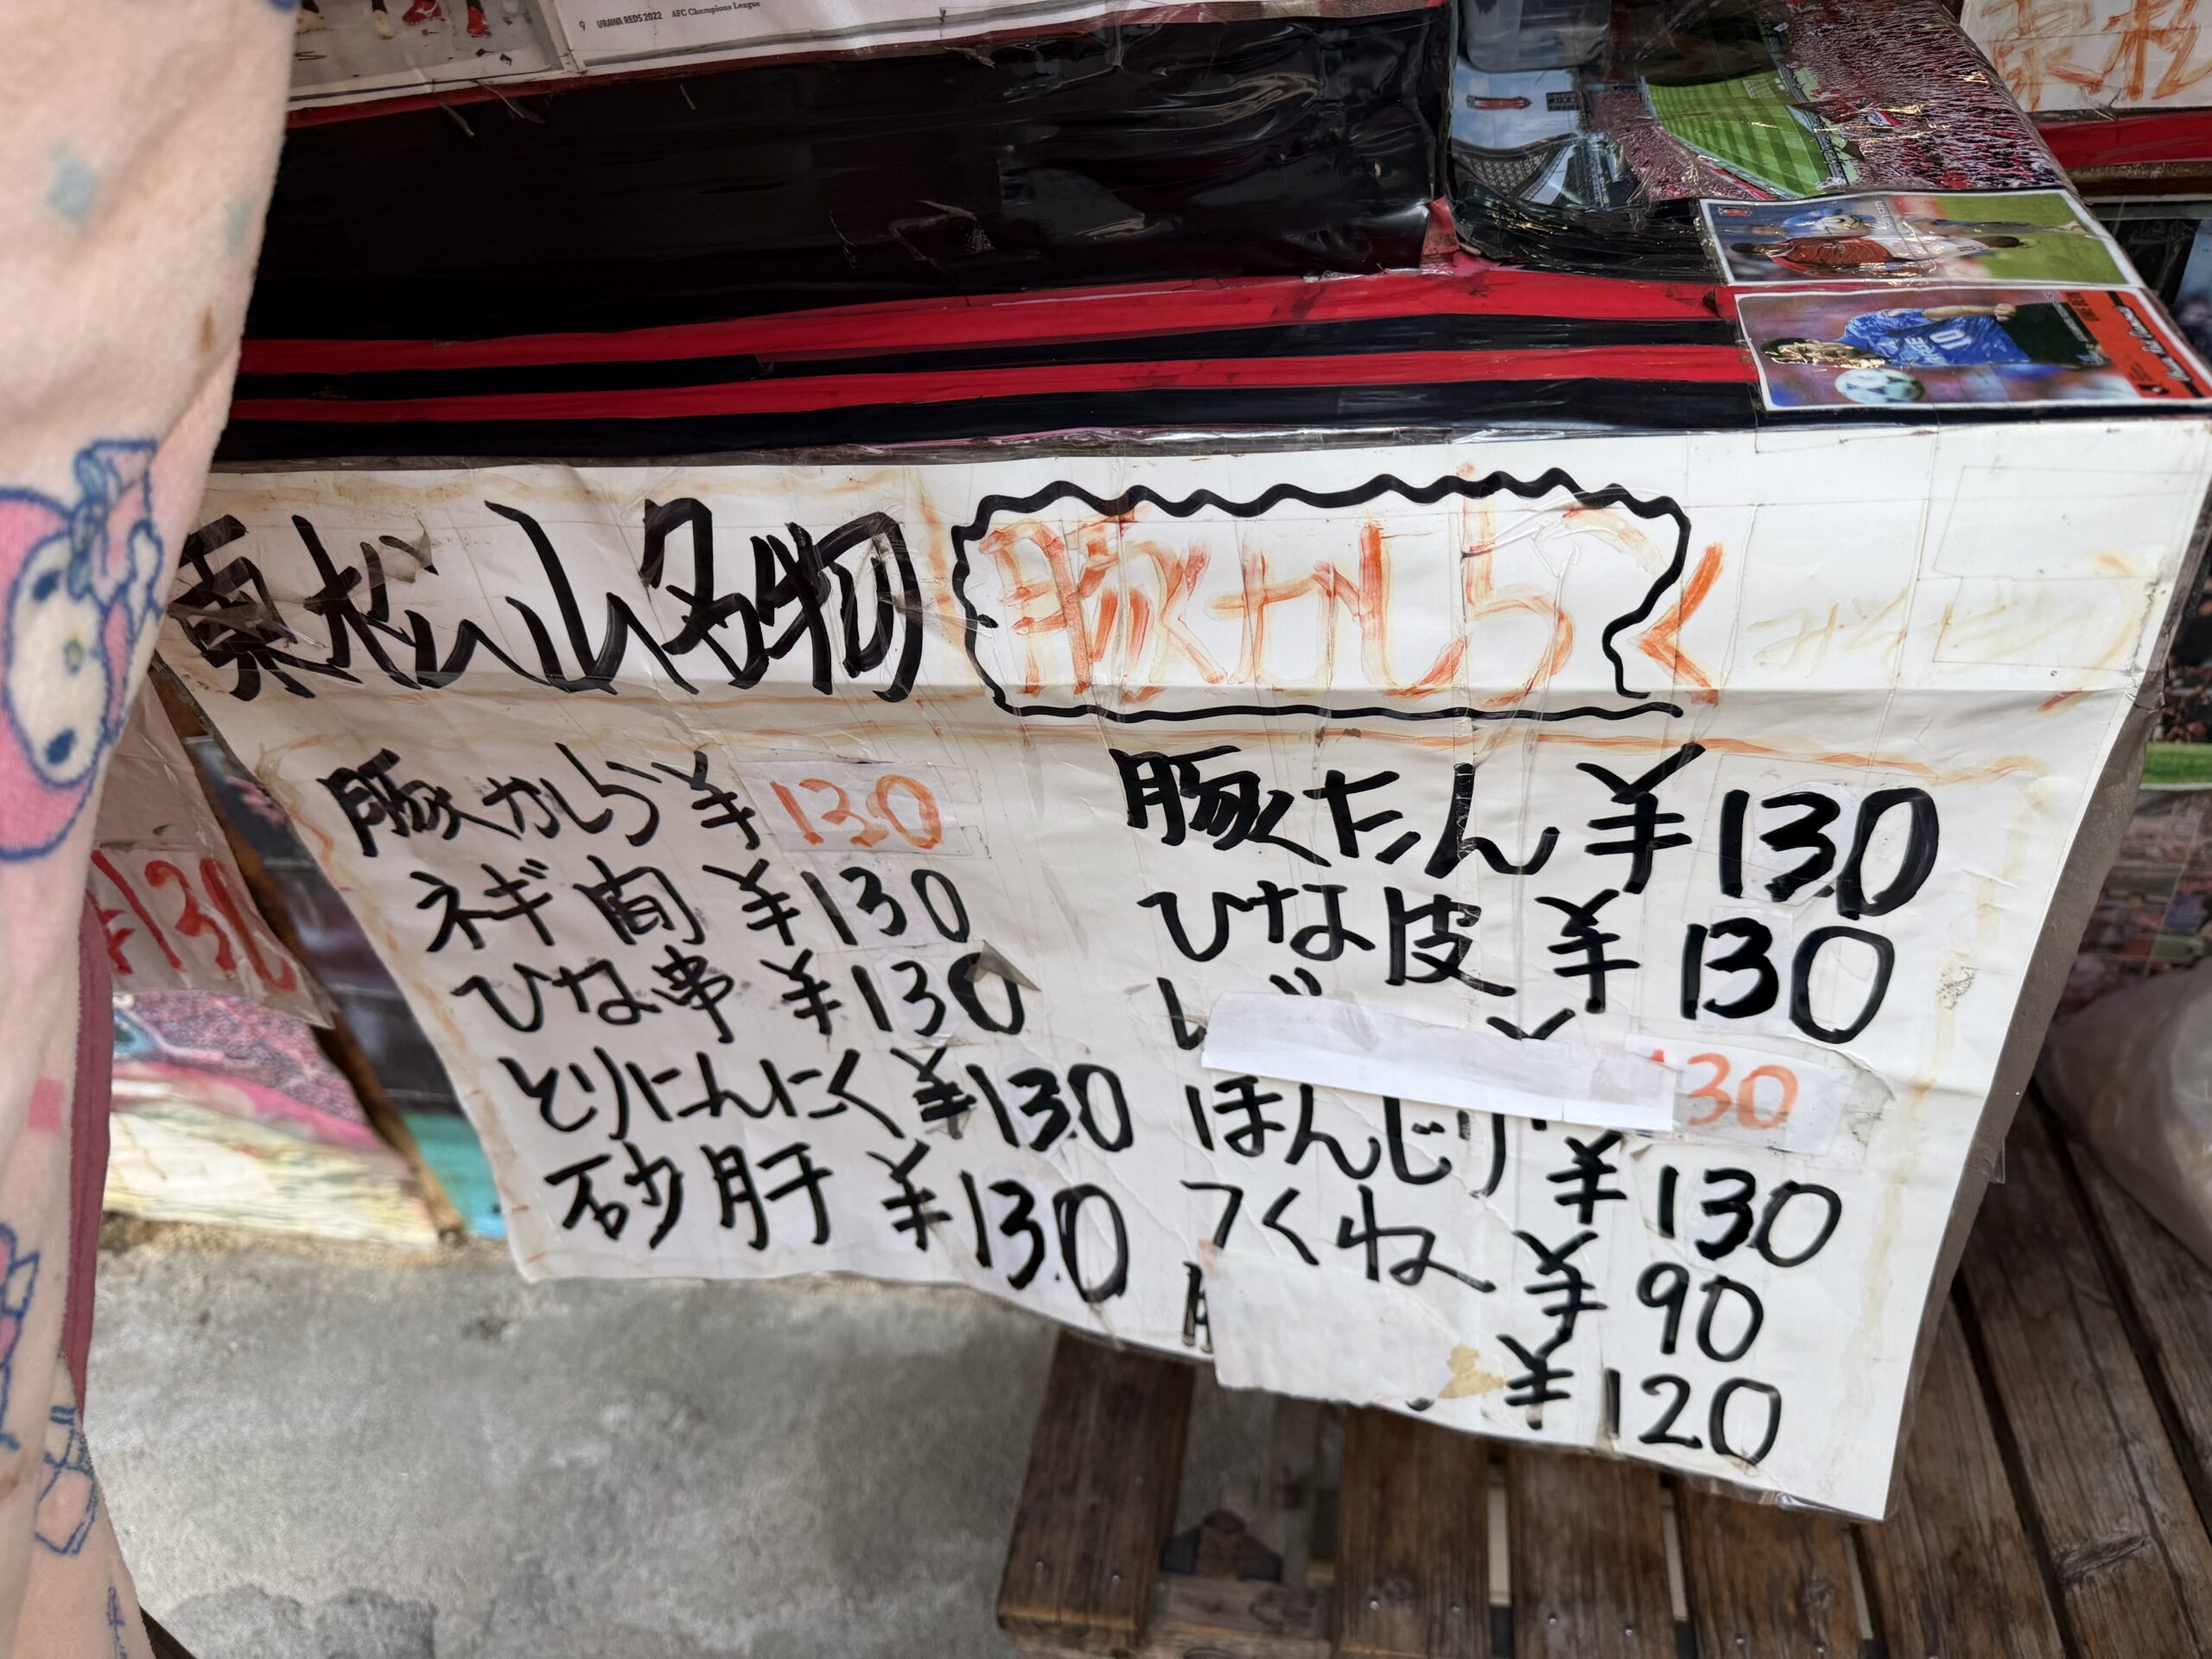 9 URAWA REDS 2022 AFC Champions League
東松山名物 豚かしらく
豚かしら ¥130
ネギ肉 ¥130
ひな串 ¥130
とりにんにく ¥130
砂肝 ¥130
豚たん ¥130
ひな皮 ¥130
30
ぼんじり ¥130
つくね ¥90
¥120
¥130